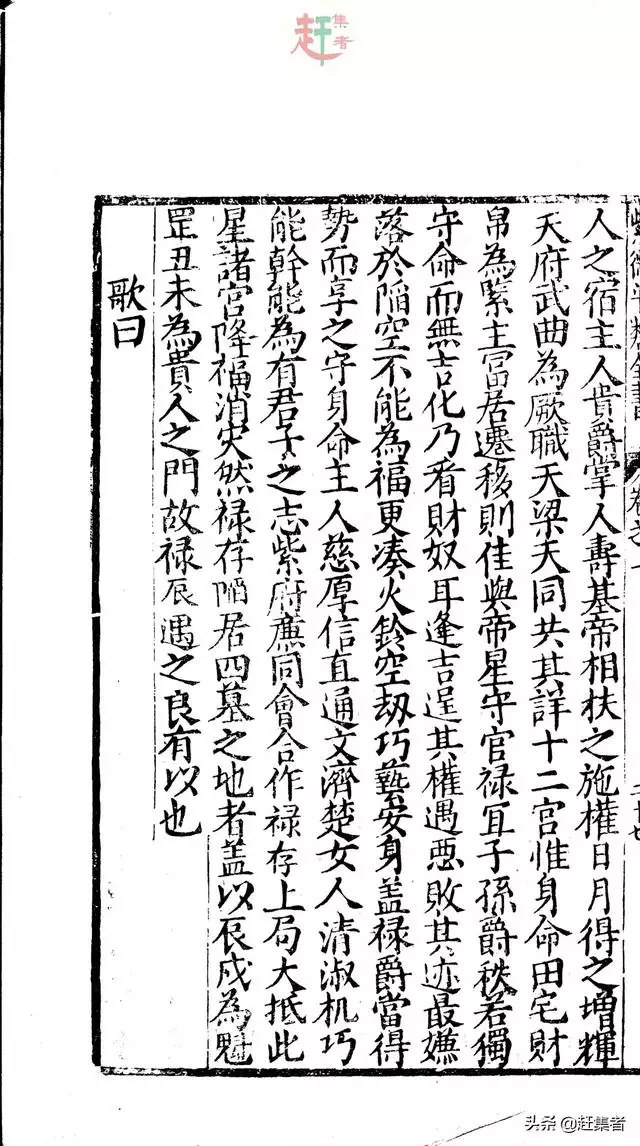 赶集者
人之宿主人貴爵掌人壽基帝相扶之施權日月得之增輝
天府武曲為厥職天梁天同共其詳十二宮惟身命田宅財
帛為緊主富居遷移則佳與帝星守官禄宜子孫爵秩若獨
守命而無吉化乃看財奴耳逢吉逞其權遇惡敗其迹最嫌
落於陷空不能為福更凑火鈴空劫巧藝安身盖禄爵當得
勢而享之守身命主人慈厚信直通文濟楚女人清淑机巧
能幹能為有君子之志紫府廉同會合作禄存上局大抵此
星諸宮降福消灾然禄存陷居四墓之地者盖以辰戍為魁
罡丑未為貴人之門故禄辰遇之良有以也
歌曰
头条@赶集者